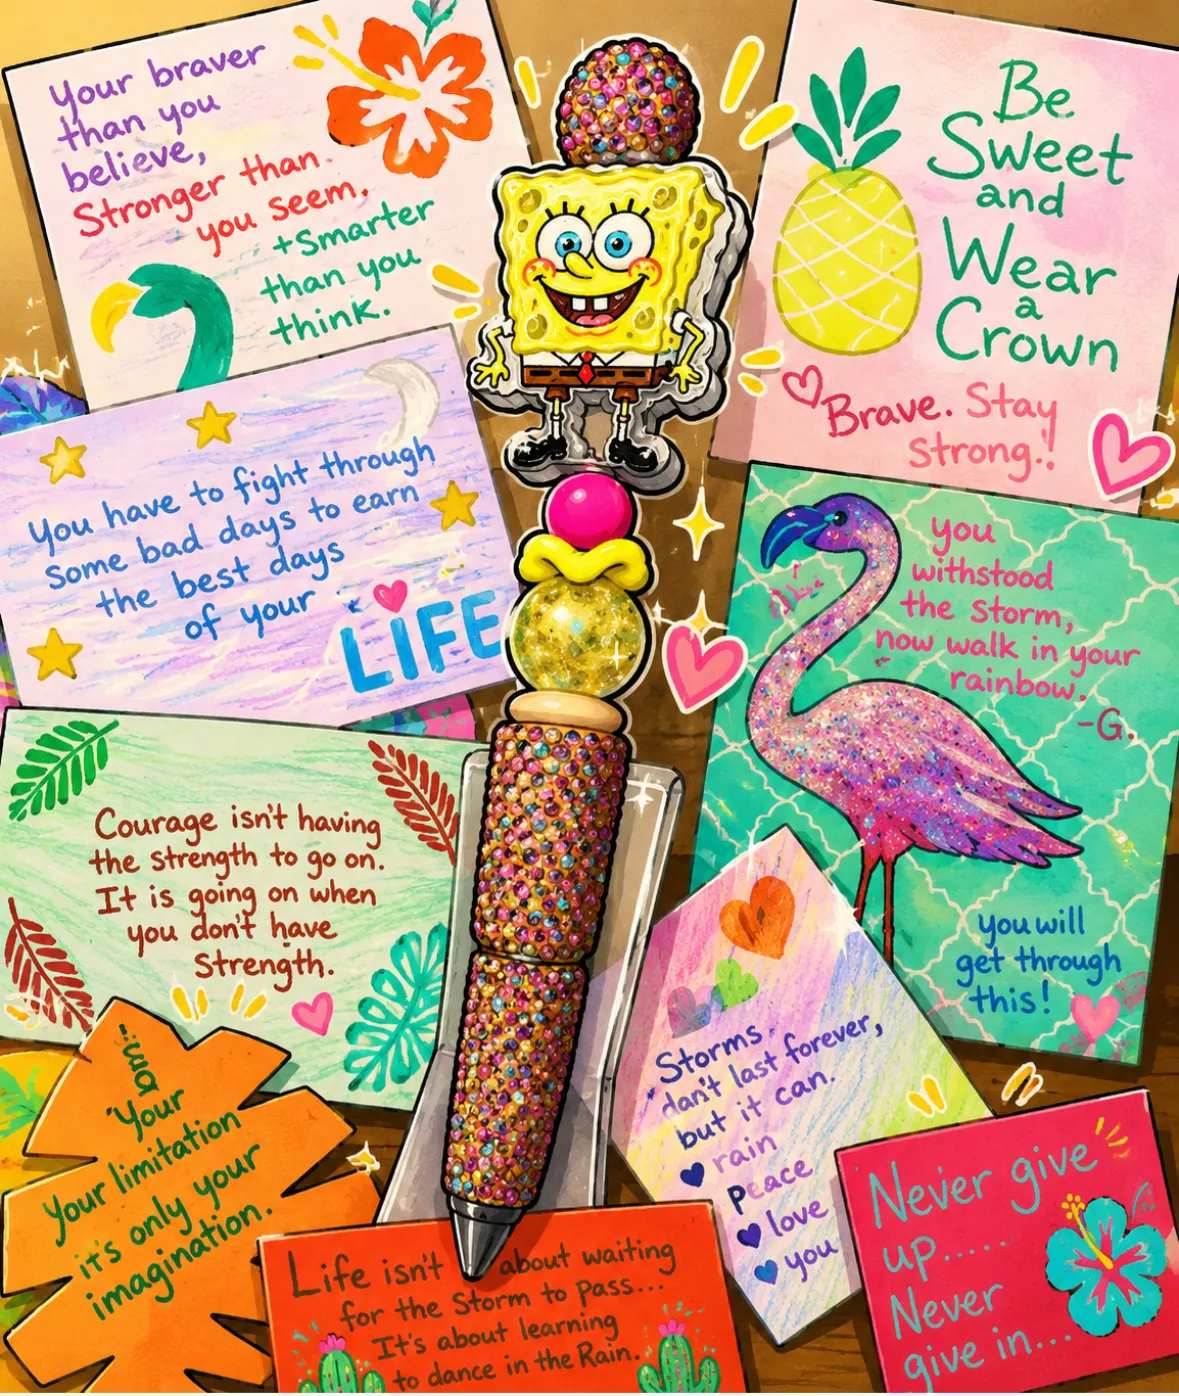 Your braver
than you
believe,
Stronger than.
you seem.
+Smarter
than you
think.
Be
Sweet
and
Wear
a
Crown
Brave. Stay
Strong.!
You have to fight through
Some bad days to earn
the best days
of your
LiFE
you
withstood
the Storm,
now walk in your
rainbow.
-G.
you will
get through
this!
Courage isn't having
the strength to go on.
It is going on when
you don't have
Strength.
Storms
dan't last forever,
but it can.
rain
Peace
love
you
Your
Your limitation
it's only your
imagination.
Life isn't about waiting
for the Storm to pass...
It's about learning
to dance in the Rain.
Never give
up.....
Never
give in...